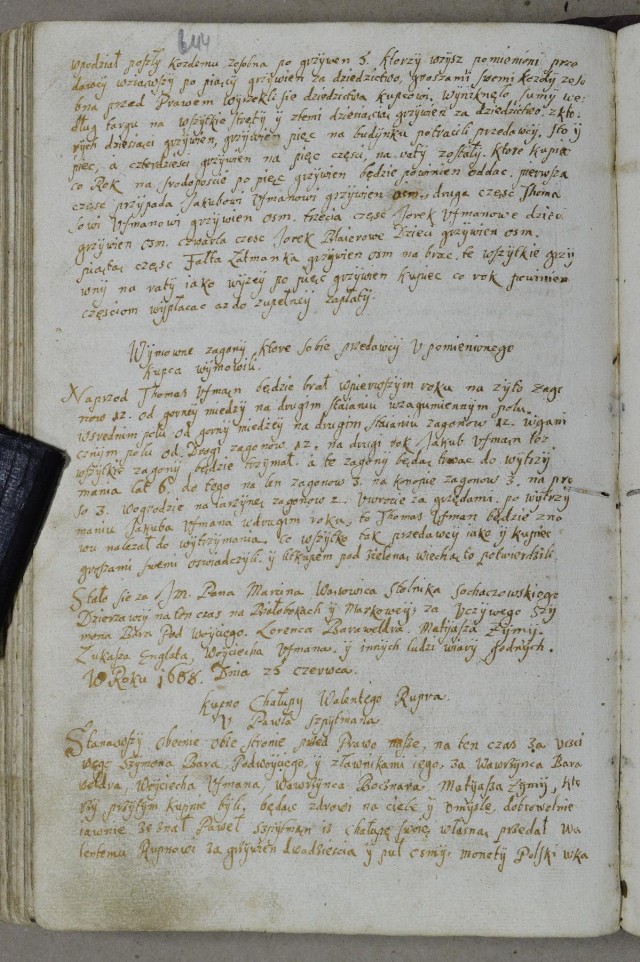 644
wpodział poszły kozdemu zosobna po grzywen 5. ktorzy wzysz pomionieni prze
dawcy wziawszy po piący grzywien za dziedzictwo, groszami swemi kozdy zoso
bna przed Prawem wyrzekli sie dziedzictwa kupcowi. Wyniknęło sumy we
dług targu na wszytkie spręty y ziemi grzywien za dziedzictwo. zkto-
rych dziesiąci grzywien, grzywien pięc na budynku potracili przedawcy. Sto y
pięc, a czterdziesci grzywien na pięc części na raty zostały. ktore kupiec
co Rok na srodoposcie po pięc grzywien będzie powinien oddac. pierwsza
częsc przypada Jakubowi Ufmanowi grzywien osm. druga częsc Thoma
sowi Ufmanowi grzywien osm. trzecia częsc Jorek Ufmanowe dzieci
grzywien osm. czwarta częsc Jorek Blaierowe Dzieci grzywien osm.
piąta częsc Falta Zatmanka grzywien osm ma brac. te wszytkie grzy
wny na raty iako wyzey po pięc grzywien kupiec co rok powinien
częsciom wypłacac az do zupełney zapłaty.
Wymowne zagony ktore sobie przedawcy U pomienionego
kupca wymowili.
Naprzod Thomas Ufman będzie brał wpierwszym roku na zyto zago
now 12. od gorney miedzy na drugim staianiu wzagumiennym polu.
wsrednim polu od gorney miedzey na drugim staianiu zagonow 12. wgani
cznym polu od Drogi zagonow 12. na drugi rok Jakub Ufman toz
wszytkie zagony będzie trzymał. a te zagony będą trwac do wytrzy
mania lat 6. do tego na len zagonow 3. na konopie zagonow 3. na pro
so 3. wogrodzie na iarzynę zagonow 2. Uwrocie za grzędami. po wytrzy
maniu Jakuba Ufmana wdrugim roku, to Thomas Ufman będzie zno
wu nalezał do wytrzymania. co wszytko tak przedawcy iako y kupiec
groszami swemi oswiadczyli. y litkupem pod zieloną wiechą to potwierdzili
Stało sie za Jm. Pana Marcina Stolnika Sochaczowskiego
Dzierzawcy na ten czas na Białobokach y Markowey, za Uczywego Szy
mona Bara Pod woyciego. Lorenca Baraweldra. Matyiasza Zymy.
Łukasza Englata, Woyciecha Ufmana. y innych ludzi wiary godnych.
W Roku 1688. Dnia 25 czerwca.
Kupno Chałupy Walentego Rupra
U Pawła Szpytmana
Stanąwszy oboinie obie stronie przed Prawo nasze, na ten czas za ucci
wego Szymona Bara, Podwoyciego, y zławnikami iego, za Wawrzynca Bara
weldra, Woyciecha Ufmana, Wawrzynca Bosznara. Matyiasza Zymy, kto
rzy przytym kupnie byli, będąc zdrowi na ciele y Umysle, dobrowolnie
iawnie zeznał Paweł Szpytman iz chałupę swoię własną przedał Wa
lentemu Ruprowi za grzywien dwadziescia y puł osmy, monety Polski wka